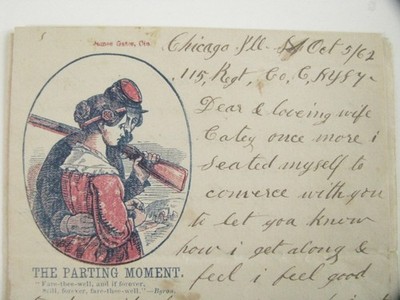 James Gates, Cin.
Chicago Ill Oct 5/62
115, Regt, Co, C, NYSV
Dear & loveing wife
Catey once more i
Seated myself to
converce with you
to let you know
how i get along &
feel i feel good
THE PARTING MOMENT.
"Fare-thee-well, and if forever,
Still, forever, fare-thee-well."—Byron.